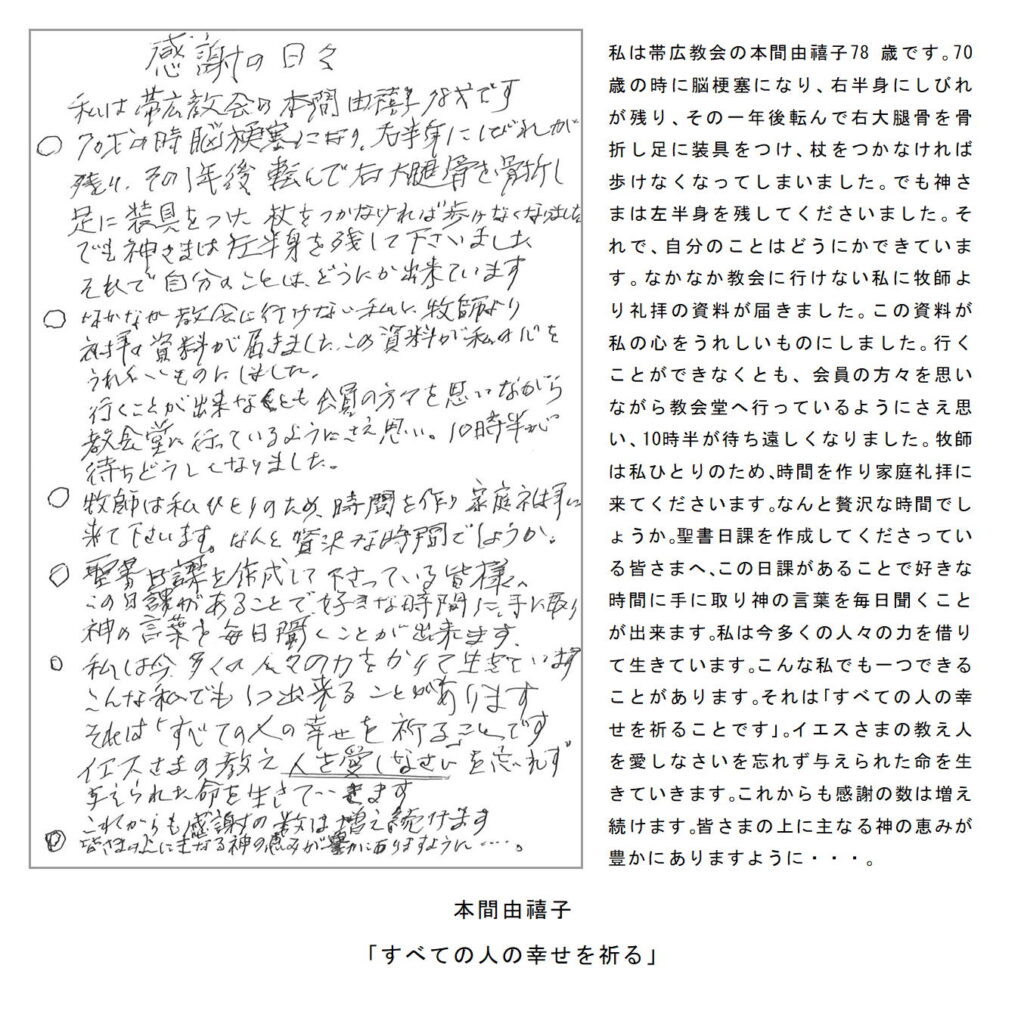 感謝の日々
私は帯広教会の本間由禧子78才です
70才の時脳梗塞になり、右半身にしびれが
残り、その1年後転んで右大腿骨を骨折し
足に装具をつけ、杖をつかなければ歩けなくなりました
でも神さまは左半身を残して下さいました
それで自分のことは、どうにか出来ています
なかなか教会に行けない私に牧師より
礼拝の資料が届きました、この資料が私の心を
うれしいものにしました。
行くことが出来なくとも会員の方々を思いながら
教会堂に行っているようにさえ思い。10時半が
待ちどうしくなりました。
牧師は私ひとりのため、時間を作り家庭礼拝に
来て下さいます。なんと贅沢な時間でしょうか。
聖書日課を作成して下さっている皆様へ
この日課があることで好きな時間に、手に取り
神の言葉を毎日聞くことが出来ます。
私しは今、多くの人々の力をかりて生きています
こんな私でも1つ出来ることがあります
それは「すべての人の幸せを祈ることです
イエスさまの教え人を愛しなさい」を忘れず
与えられた命を生きていきます
これからも感謝の数は増え続けます
皆さまの上に主なる神の恵みが豊かにありますように・・・・。
私は帯広教会の本間由禧子78 歳です。70
歳の時に脳梗塞になり、右半身にしびれ
が残り、その一年後転んで右大腿骨を骨
折し足に装具をつけ、杖をつかなければ
歩けなくなってしまいました。でも神さ
まは左半身を残してくださいました。そ
れで、自分のことはどうにかできていま
す。なかなか教会に行けない私に牧師よ
り礼拝の資料が届きました。この資料が
私の心をうれしいものにしました。行く
ことができなくとも、会員の方々を思い
ながら教会堂へ行っているようにさえ思
い、10時半が待ち遠しくなりました。牧師
は私ひとりのため、時間を作り家庭礼拝に
来てくださいます。なんと贅沢な時間でし
ょうか。聖書日課を作成してくださってい
る皆さまへ、この日課があることで好きな
時間に手に取り神の言葉を毎日聞くこと
が出来ます。私は今多くの人々の力を借り
て生きています。こんな私でも一つできる
ことがあります。それは「すべての人の幸
せを祈ることです」。イエスさまの教え人
を愛しなさいを忘れず与えられた命を生
きていきます。これからも感謝の数は増え
続けます。皆さまの上に主なる神の恵みが
豊かにありますように・・・。
本間由禧子
「すべての人の幸せを祈る」